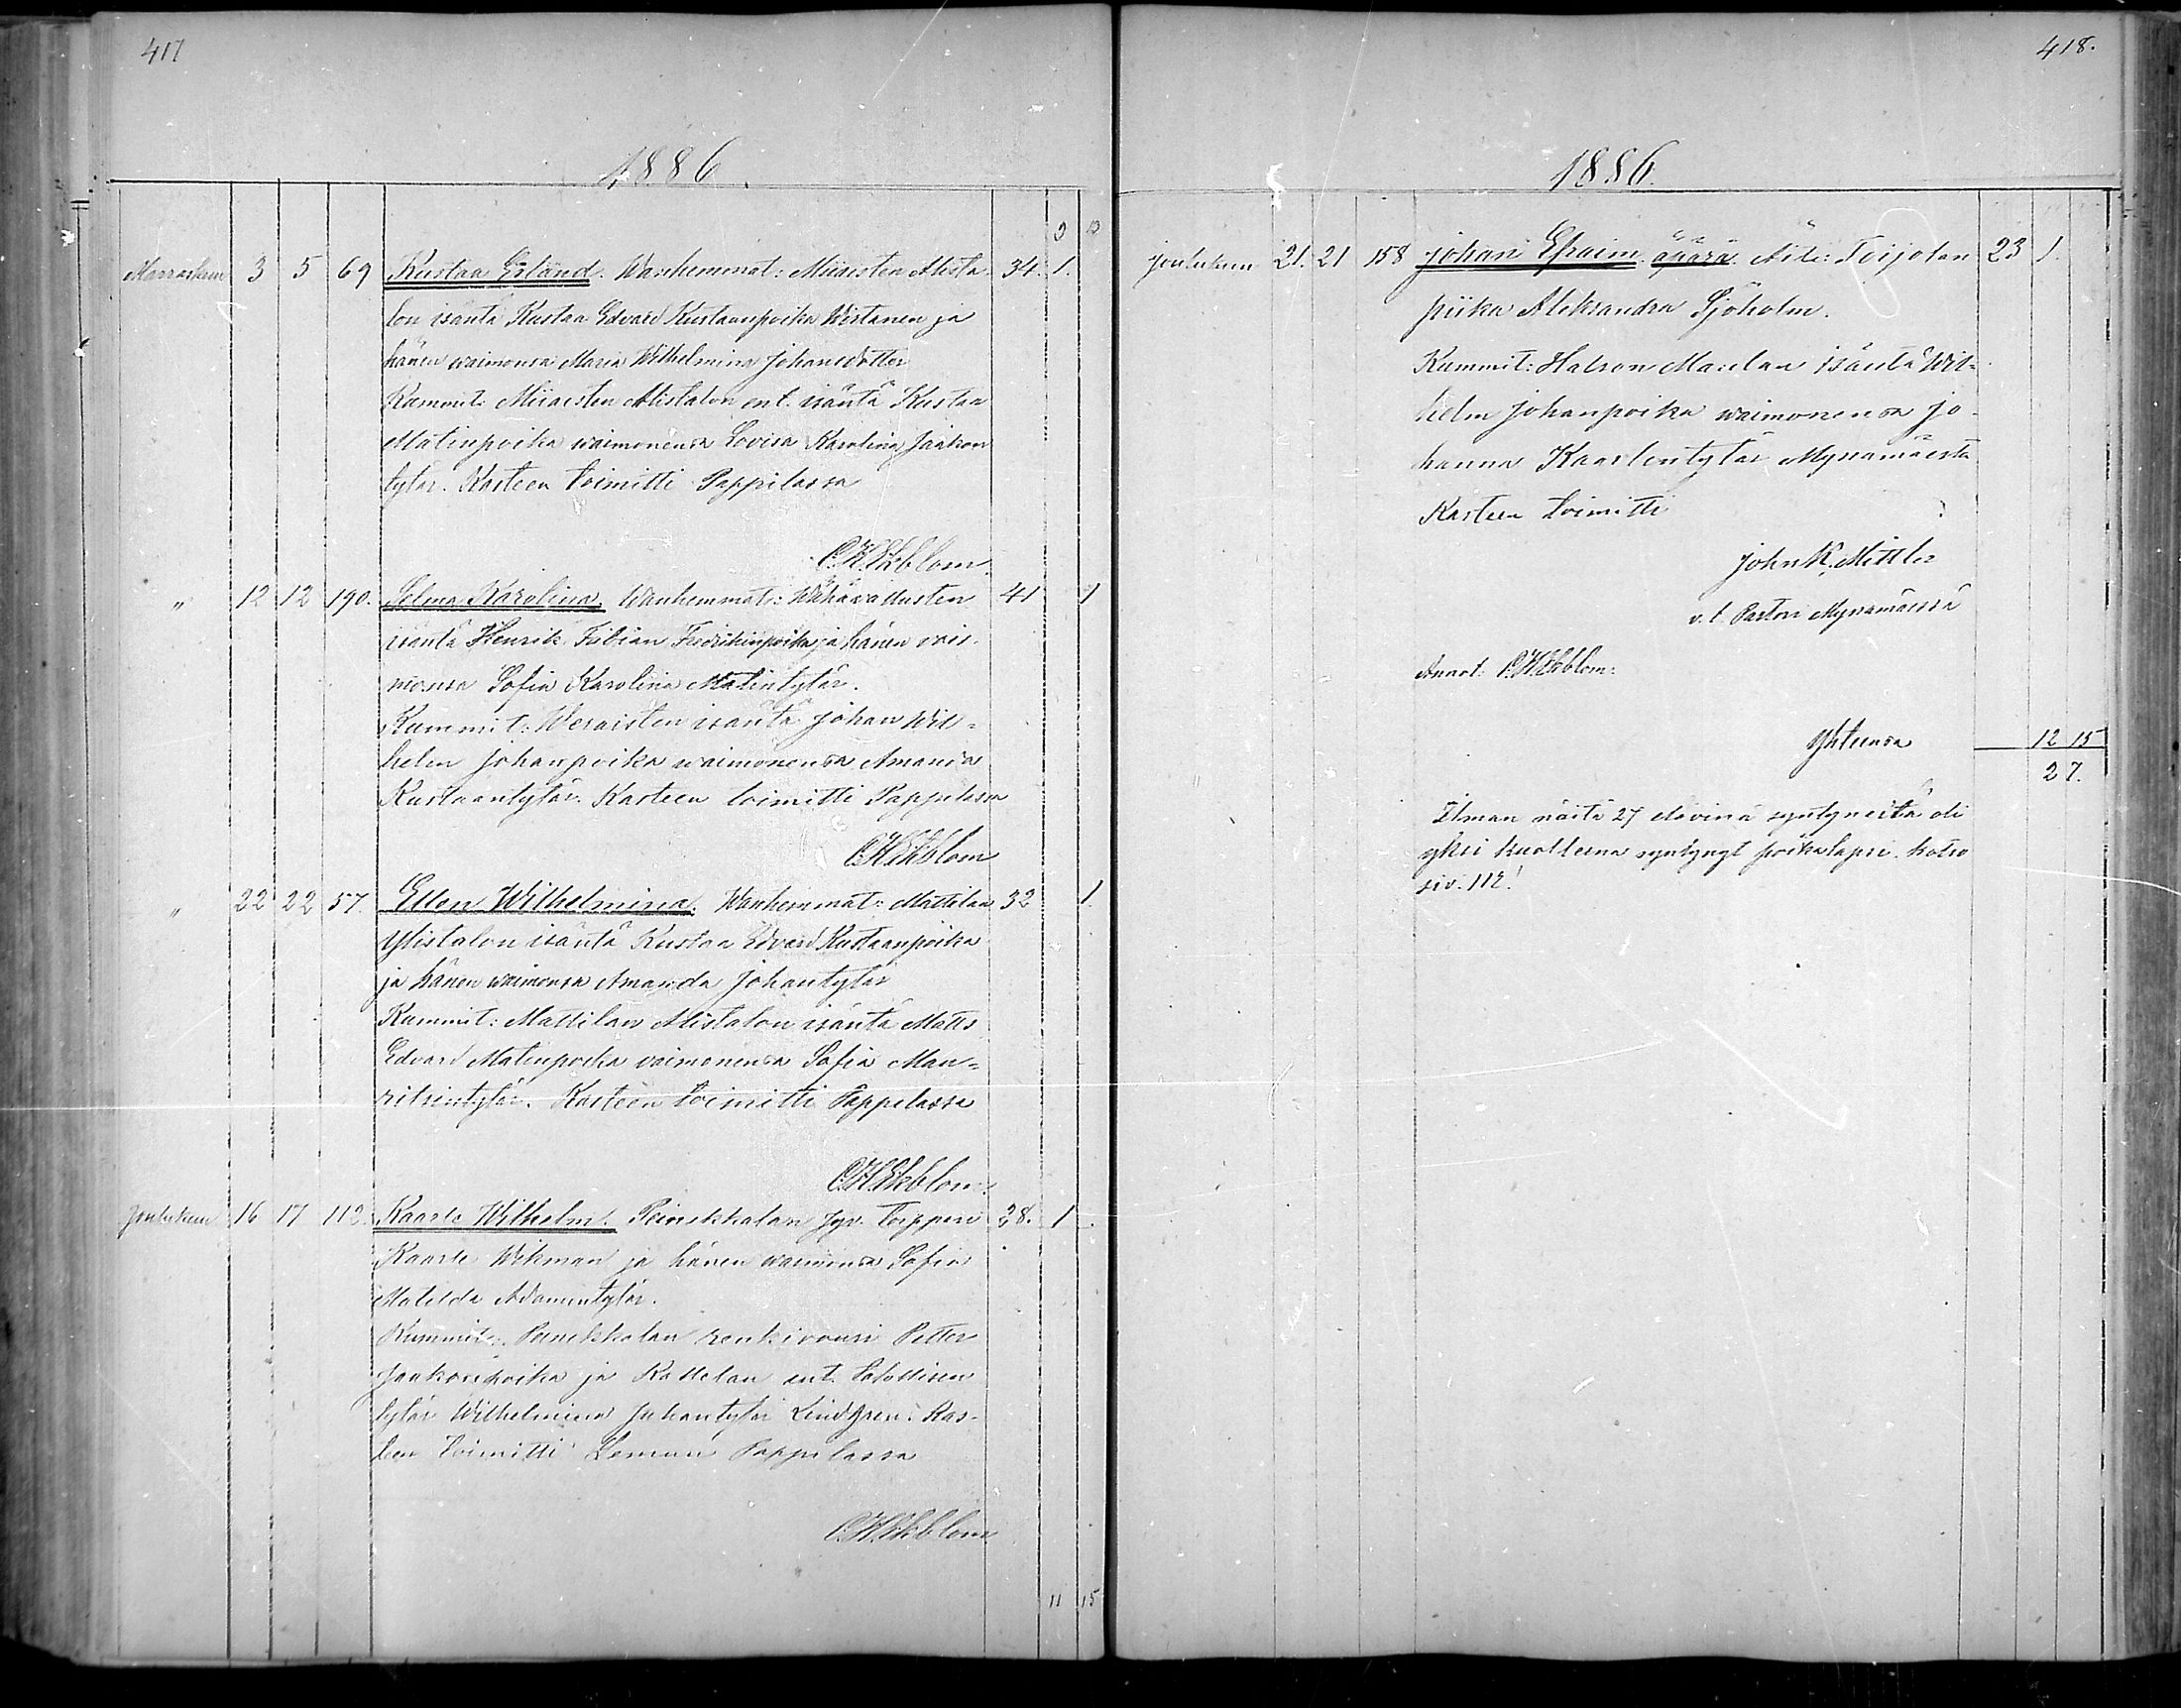 417
1886.
9 13
Marraskun 3 5 69 Kustaa Erland. Wanhemmat: Miiaisten Alista 34. 1.
lon isäntä Kustaa Edvard Kustaanpoika Wirtanen ja
hänen waimonsa Maria Wilhelmina Johansdotter
Kummit: Miiaisten Alistalon ent. isäntä Kustaa
Matinpoika waimonensa Lovisa Karolina Jaakon
tytär. Kasteen toimitti Pappilassa
C.H.Ekblom.
" 12 12 190. Selma Karolina. Wanhemmat: Wähäwallusten 41 1
isäntä Henrik Fabian Fredrikinpoika ja hänen vai-
monsa Sofia Karolina Matintytär.
Kummit: Weraisten isäntä Johan Wil=
helm Johanpoika waimonensa Amanda
Kustaantytär. Kasteen toimitti Pappilassa
C.H.Ekblom
" 22 22 57. Ellen Wilhelmina. Wanhemmat: Mattilan 32 1.
Ylistalon isäntä Kustaa Edvard Kustaanpoika
ja hänen waimonsa Amanda Johantytär
Kummit: Mattilan Alistalon isäntä Matts
Edvard Matinpoika vaimonensa Sofia Mau=
ritsintytär. Kasteen toimitti Pappilassa
C.H.Ekblom.
Joulukun 16 17 112. Kaarle Wilhelm. torppari 28. 1
Kaarle Wikman ja hänen waimonsa Sofia
Matilda Adamintytär.
Kummit: renkivouri Petter
Jaakonpoika ja Kattelan ent.
tytär Wilhelmina Juhantytär Lindgren. Kas-
teen toimitti Lemun Pappilassa
C.H.Ekblom
11 15
418.
1886.
Joulukun 21. 21 158 Johan Efraim. äpärä. Äiti: Toijolan 23 1.
piika Aleksandra Sjöholm.
Kummit: isäntä Wil=
helm Johanpoika waimonensa Jo-
hanna Kaarlentytär Mynämäestä
Kasteen toimitti
John K. Mittler
v.t. Pastori Mynämäessä
Annot: C.H.Ekblom.
Yhteensä 12 15
27.
Ilman näitä 27 elävinä syntyneitä oli
yksi kuolleena syntynyt poikalapsi. katso
siv. 112!